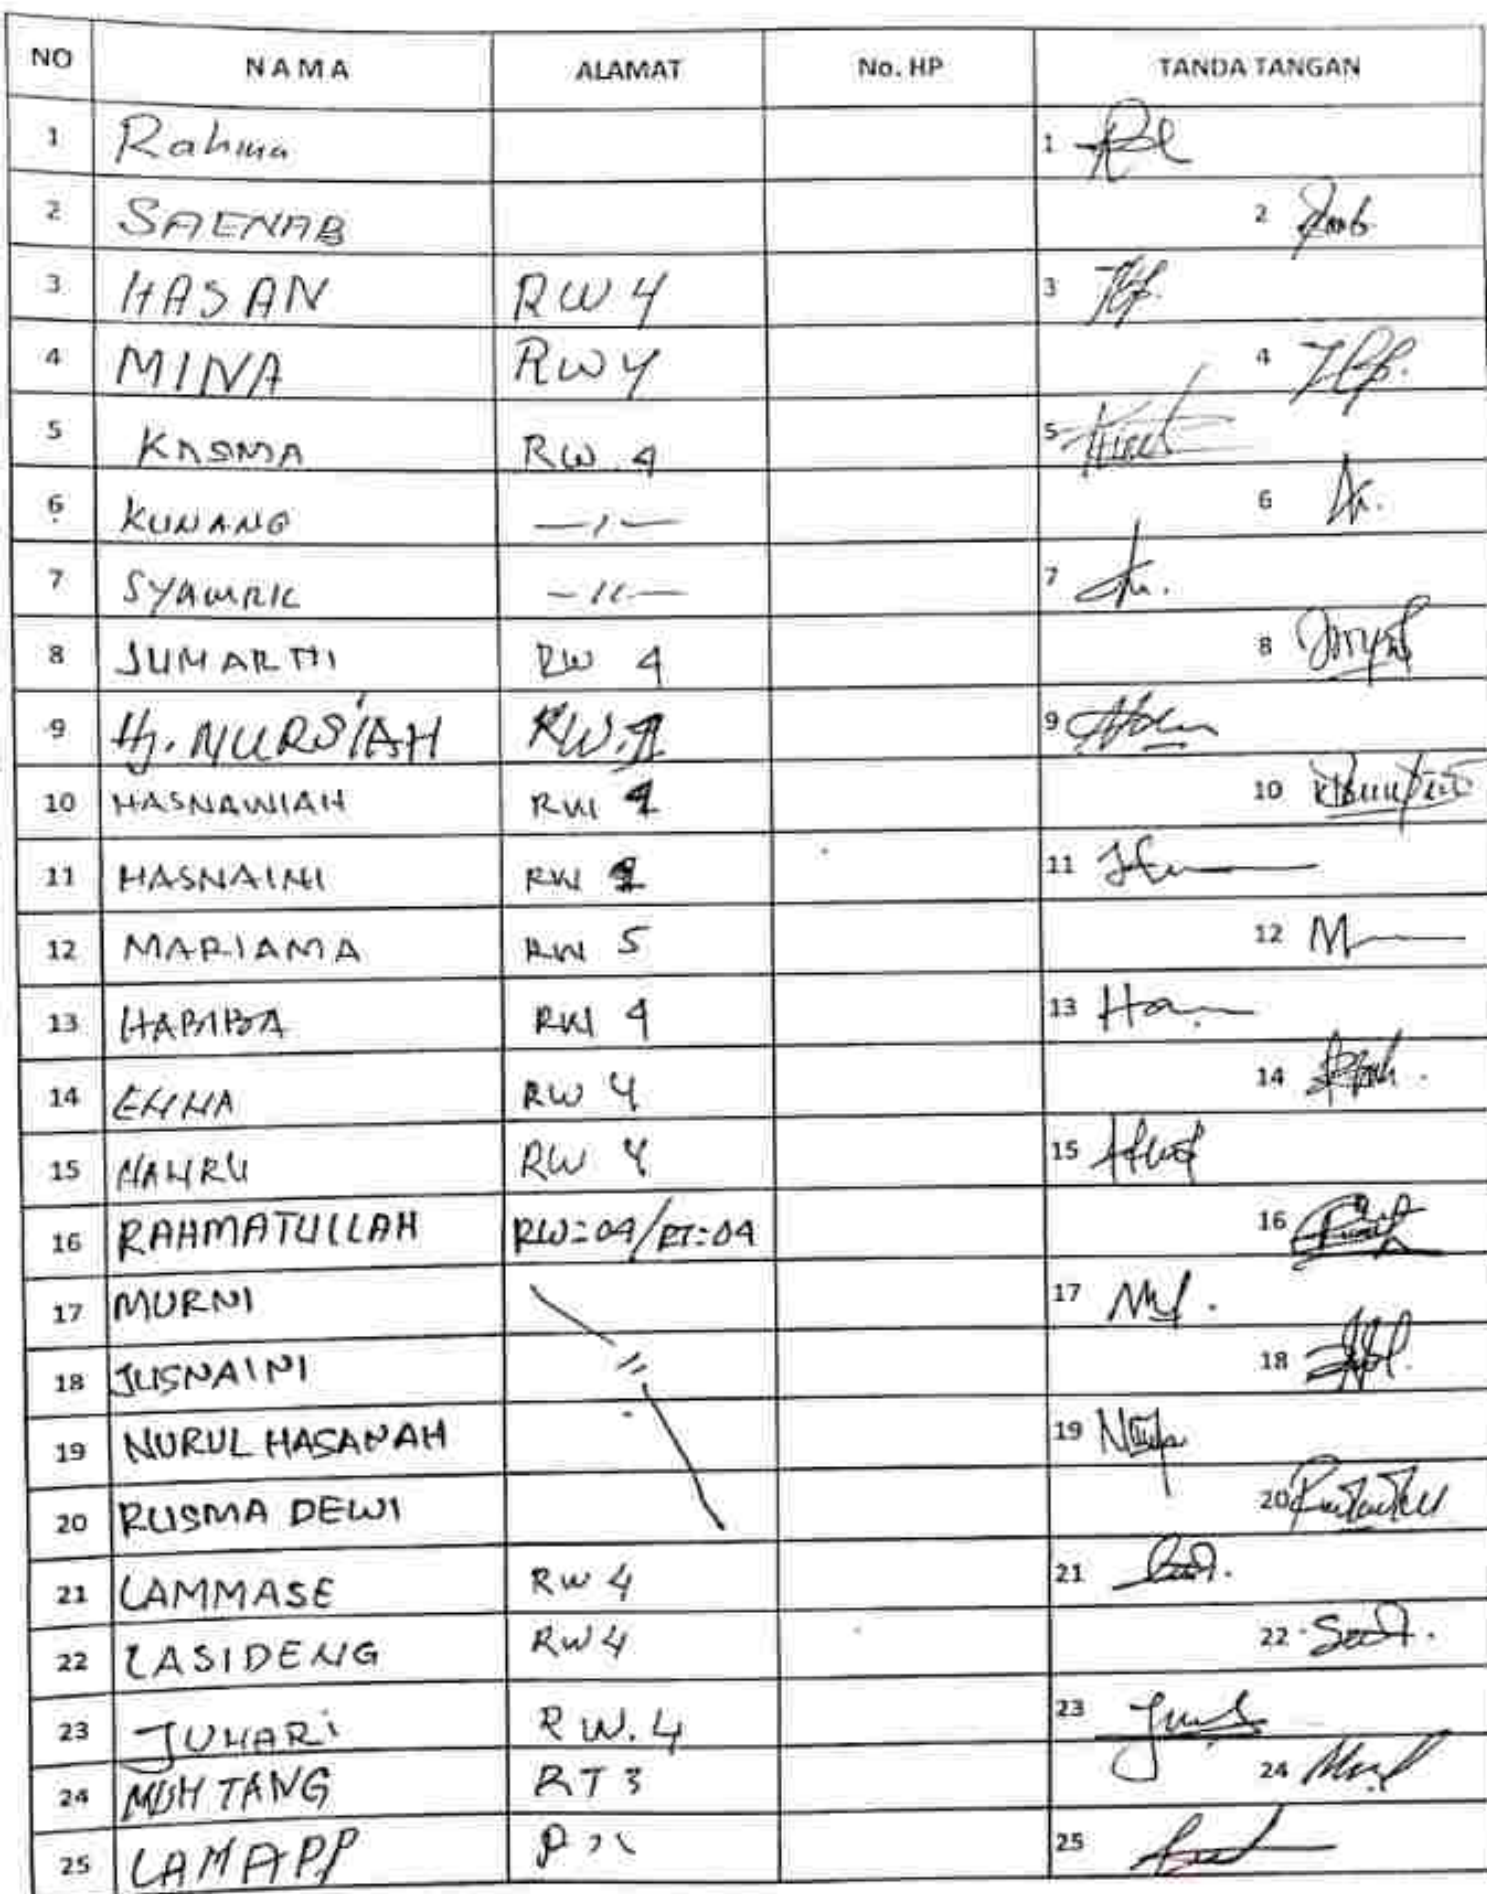 NO NAMA ALAMAT No. HP TANDA TANGAN
1 Rahma 1
2 SAENAB 2
3 HASAN RW 4 3
4 MINA RW 4 4
5 KASMA RW. 4 5
6 KUNANG —〃— 6
7 —〃— 7
8 JUMARTHI RW 4 8
9 Hj. NURSIAH RW. 9
10 HASNAWIAH RW 4 10
11 HASNAINI RW 11
12 MARIAMA RW 5 12
13 HABIBA RW 4 13
14 ENNA RW 4 14
15 NAHRU RW 4 15
16 RAHMATULLAH RW=04/RT=04 16
17 MURNI 17
18 JUSNAINI 〃 18
19 NURUL HASANAH 19
20 RUSMA DEWI 20
21 LAMMASE RW 4 21
22 LASIDENG RW 4 22
23 JUHARI RW. 4 23
24 MUH TANG RT 3 24
25 LAMAPP 25